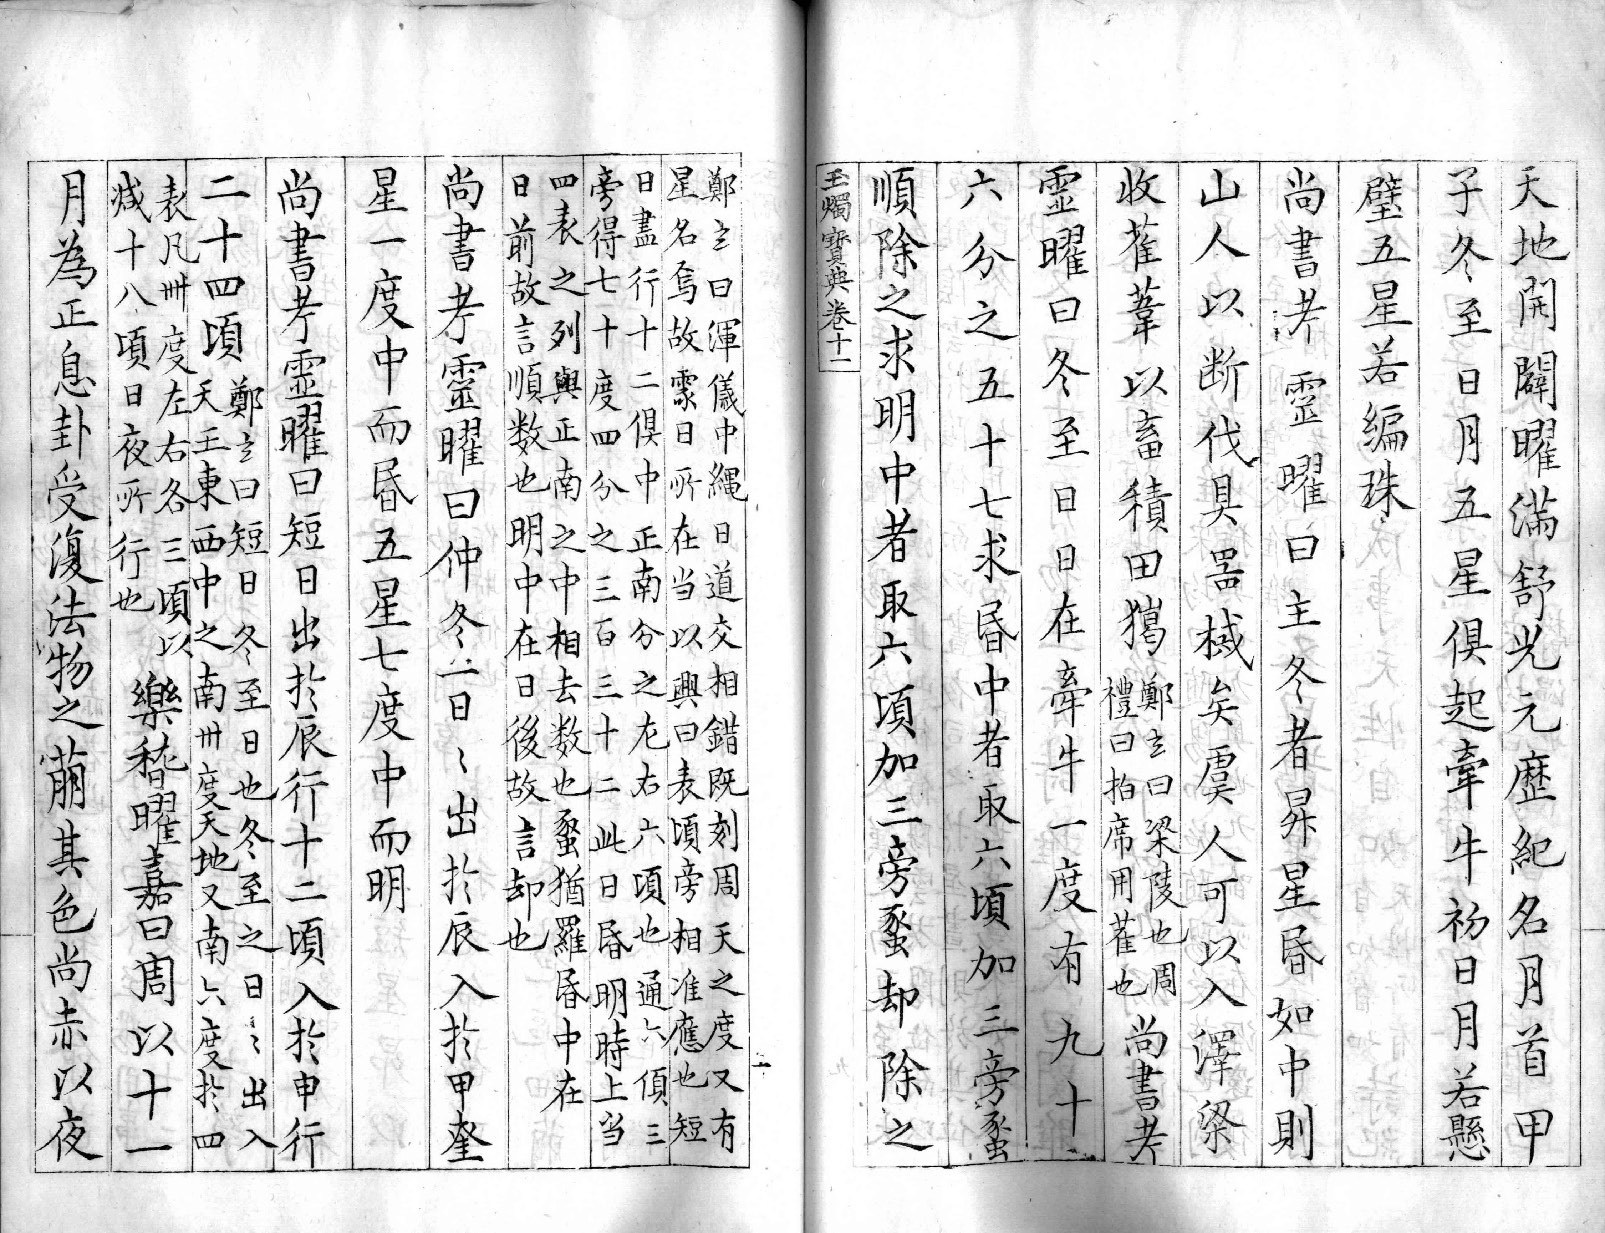 天地開闢曜滿舒光元歷紀名月首甲
子冬至日月五星俱起牽牛初日月若懸
璧五星若編珠
尚書考靈曜曰主冬者昴星昏如中則
山人以断伐具噐械矣虞人可以入澤梁
收萑葦以畜積田獦鄭玄曰梁陵也周
禮曰拍席用萑也尚書考
靈曜曰冬至日日在牽牛一度有九十
六分之五十七求昏中者取六頃加三旁蠡
順除之求明中者取六頃加三旁蠡却除之
玉燭寶典卷十一
鄭玄曰渾儀中繩日道交相錯既刻周天之度又有
星名焉故處日所在当以興曰表頃旁相准應也短
日盡行十二俱中正南分之左右六頃也通六頃三
旁得七十度四分之三百三十二此日昏明時上当
四表之列與正南之中相去数也蠡猶羅昏中在
日前故言順数也明中在日後故言却也
尚書考靈曜曰仲冬一日〻出於辰入於甲奎
星一度中而昏五星七度中而明
尚書考靈曜曰短日出於辰行十二頃入於申行
二十四頃鄭玄曰短日冬至日也冬至之日〻出入
天王東西中之南卅度天地又南六度於四
表凡卌度左右各三頃以
減十八頃日夜所行也樂稽曜嘉曰周以十一
月為正息卦受復法物之萠其色尚赤以夜